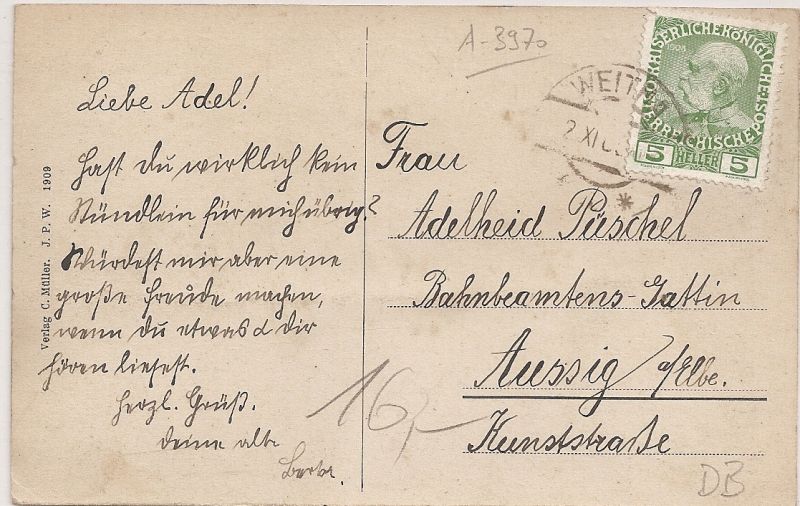 A-3970
KAISERLICHEKÖNIGLICHE
ÖSTERREICHISCHE POST
1908
5 HELLER 5
WEIT
2 XI 0
Liebe Adel!
Hast du wirklich kein
Stündlein für mich übrig?
Würdest mir aber eine
große Freude machen,
wenn du etwas v dir
hören ließest.
Herzl. Grüß.
deine alte
Verlag C. Müller. J. P. W. 1909
Frau
Adelheid Püschel
Bahnbeamtens-Gattin
Aussig a/Elbe.
Kunststraße
16,-
DB